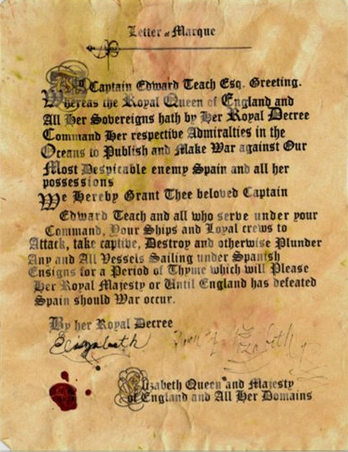 Letter of Marque
To Captain Edward Teach Esq. Greeting.
Whereas the Royal Queen of England and
All Her Sovereigns hath by Her Royal Decree
Command Her respective Admiralties in the
Oceans to Publish and Make War against Our
Most Despicable enemy Spain and all her
possessions
We Hereby Grant Thee beloved Captain
Edward Teach and all who serve under your
Command, Your Ships and Loyal crews to
Attack, take captive, Destroy and otherwise Plunder
Any and All Vessels Sailing under Spanish
Ensigns for a Period of Thyme which will Please
Her Royal Majesty or Until England has defeated
Spain should War occur.
By her Royal Decree
Elizabeth
Elizabeth
Elizabeth Queen and Majesty
of England and All Her Domains